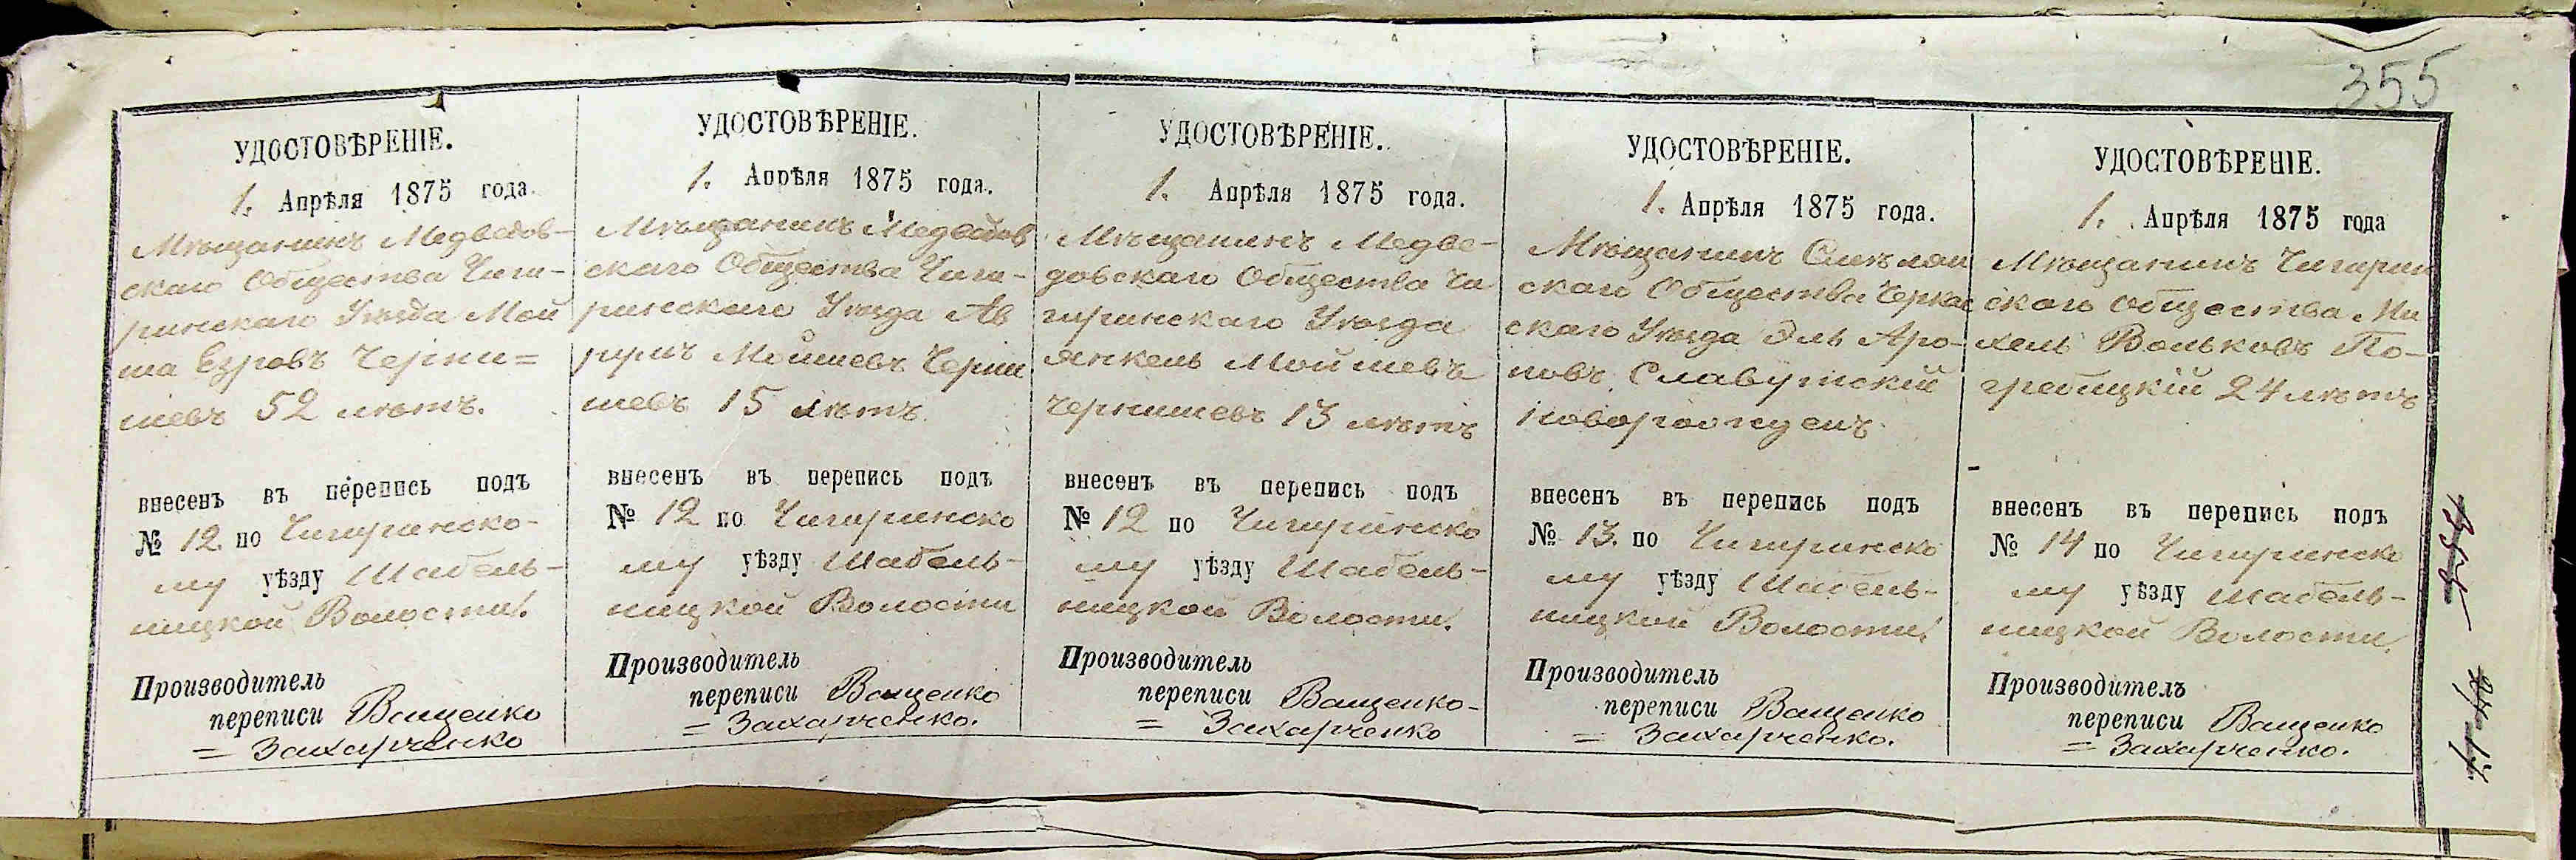 355
УДОСТОВѢРЕНІЕ.
1. Апрѣля 1875 года.
Мѣщанинъ Медведов-
скаго Общества Чиги-
ринскаго Уѣзда Мой
ша Езровъ Черни=
шевъ 52 лѣтъ.
внесенъ въ перепись подъ
№ 12. по Чигиринско-
му уѣзду Шабель-
ницкой Волости.
Производитель
переписи Ващенко
= Захарченко
УДОСТОВѢРЕНІЕ.
1. Апрѣля 1875 года.
Мѣщанинъ Медведов
скаго Общества Чиги-
ринскаго Уѣзда Ав
румъ Мойшевъ Черни
шевъ 15 лѣтъ.
внесенъ въ перепись подъ
№ 12 по Чигиринско
му уѣзду Шабель-
ницкой Волости
Производитель
переписи Ващенко
= Захарченко.
УДОСТОВѢРЕНІЕ.
1. Апрѣля 1875 года.
Мѣщанинъ Медве-
довскаго Общества Чи
гиринскаго Уѣзда
Янкель Мойшевъ
Чернишевъ 13 лѣтъ
внесенъ въ перепись подъ
№ 12 по Чигиринско
му уѣзду Шабель-
ницкой Волости.
Производитель
переписи Ващенко-
= Захарченко
УДОСТОВѢРЕНІЕ.
1. Апрѣля 1875 года.
Мѣщанинъ Смѣлян
скаго Общества Черкас
скаго Уѣзда Эль Аро-
новъ Славутскій
новорожденъ.
внесенъ въ перепись подъ
№ 13. по Чигиринско
му уѣзду Шабель-
ницкой Волости.
Производитель
переписи Ващенко
= Захарченко.
УДОСТОВѢРЕНІЕ.
1. Апрѣля 1875 года
Мѣщанинъ Чигирин
скаго Общества Ми
хель Вольковъ По-
гребицкій 24 лѣтъ
внесенъ въ перепись подъ
№ 14 по Чигиринско
му уѣзду Шабель-
ницкой Волости.
Производитель
переписи Ващенко
= Захарченко.